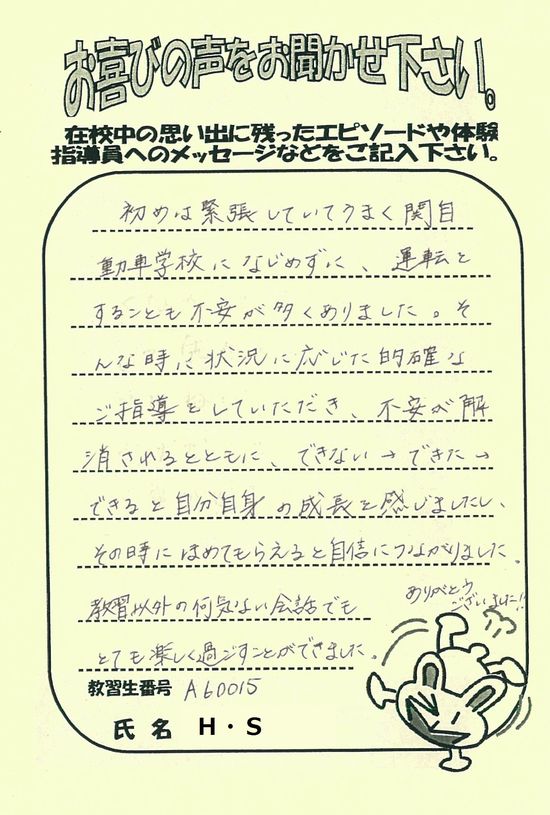 お喜びの声をお聞かせ下さい。
在校中の思い出に残ったエピソードや体験
指導員へのメッセージなどをご記入下さい。
初めは緊張していてうまく関自
動車学校になじめずに、運転と
することも不安が多くありました。そ
んな時に状況に応じた的確な
ご指導をしていただき、不安が解
消されるとともに、できない→できた→
できると自分自身の成長を感じましたし、
その時にほめてもらえると自信につながりました。
教習以外の何気ない会話でも
とても楽しく過ごすことができました。
ありがとう
ございました!!
教習生番号 A60015
氏名 H・S